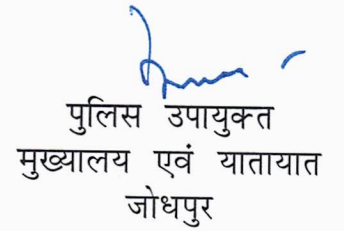 पुलिस उपायुक्त
मुख्यालय एवं यातायात
जोधपुर